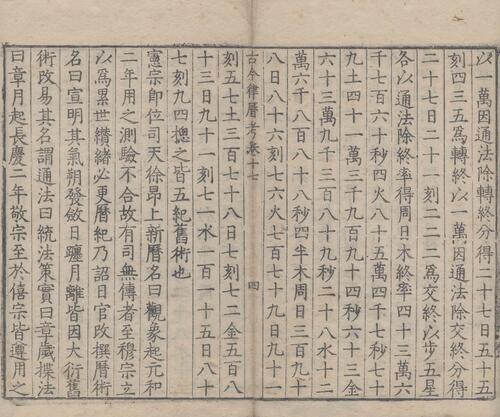 以一萬因通法除轉終分得二十七日五十五
刻四三五爲轉終以一萬因通法除交終分得
二十七日二十一刻二二二爲交終以步五星
各以通法除終率得周日木終率四十三萬六
千七百六十秒四火八十五萬四千七秒七十
九土四十一萬三千九百九十四秒六十三金
六十三萬九千三百八十九秒二十八水十二
萬六千八百八十八秒四半木周日三百九十
八日八十六刻七六火七百七十九日九十一
古今律曆考卷十七
四
刻五七土三百七十八日七刻七二金五百八
十三日九十一刻七一水一百一十五日八十
七刻九四摠之皆五紀舊術也
憲宗即位司天徐昂上新曆名曰觀象起元和
二年用之測驗不合故有司無傳者至穆宗立
以爲累世纘緒必更曆紀乃詔日官改撰曆術
名曰宣明其氣朔發斂日躔月離皆因大衍舊
術改易其名謂通法曰統法策實曰章歲揲法
曰章月起長慶二年敬宗至於僖宗皆遵用之